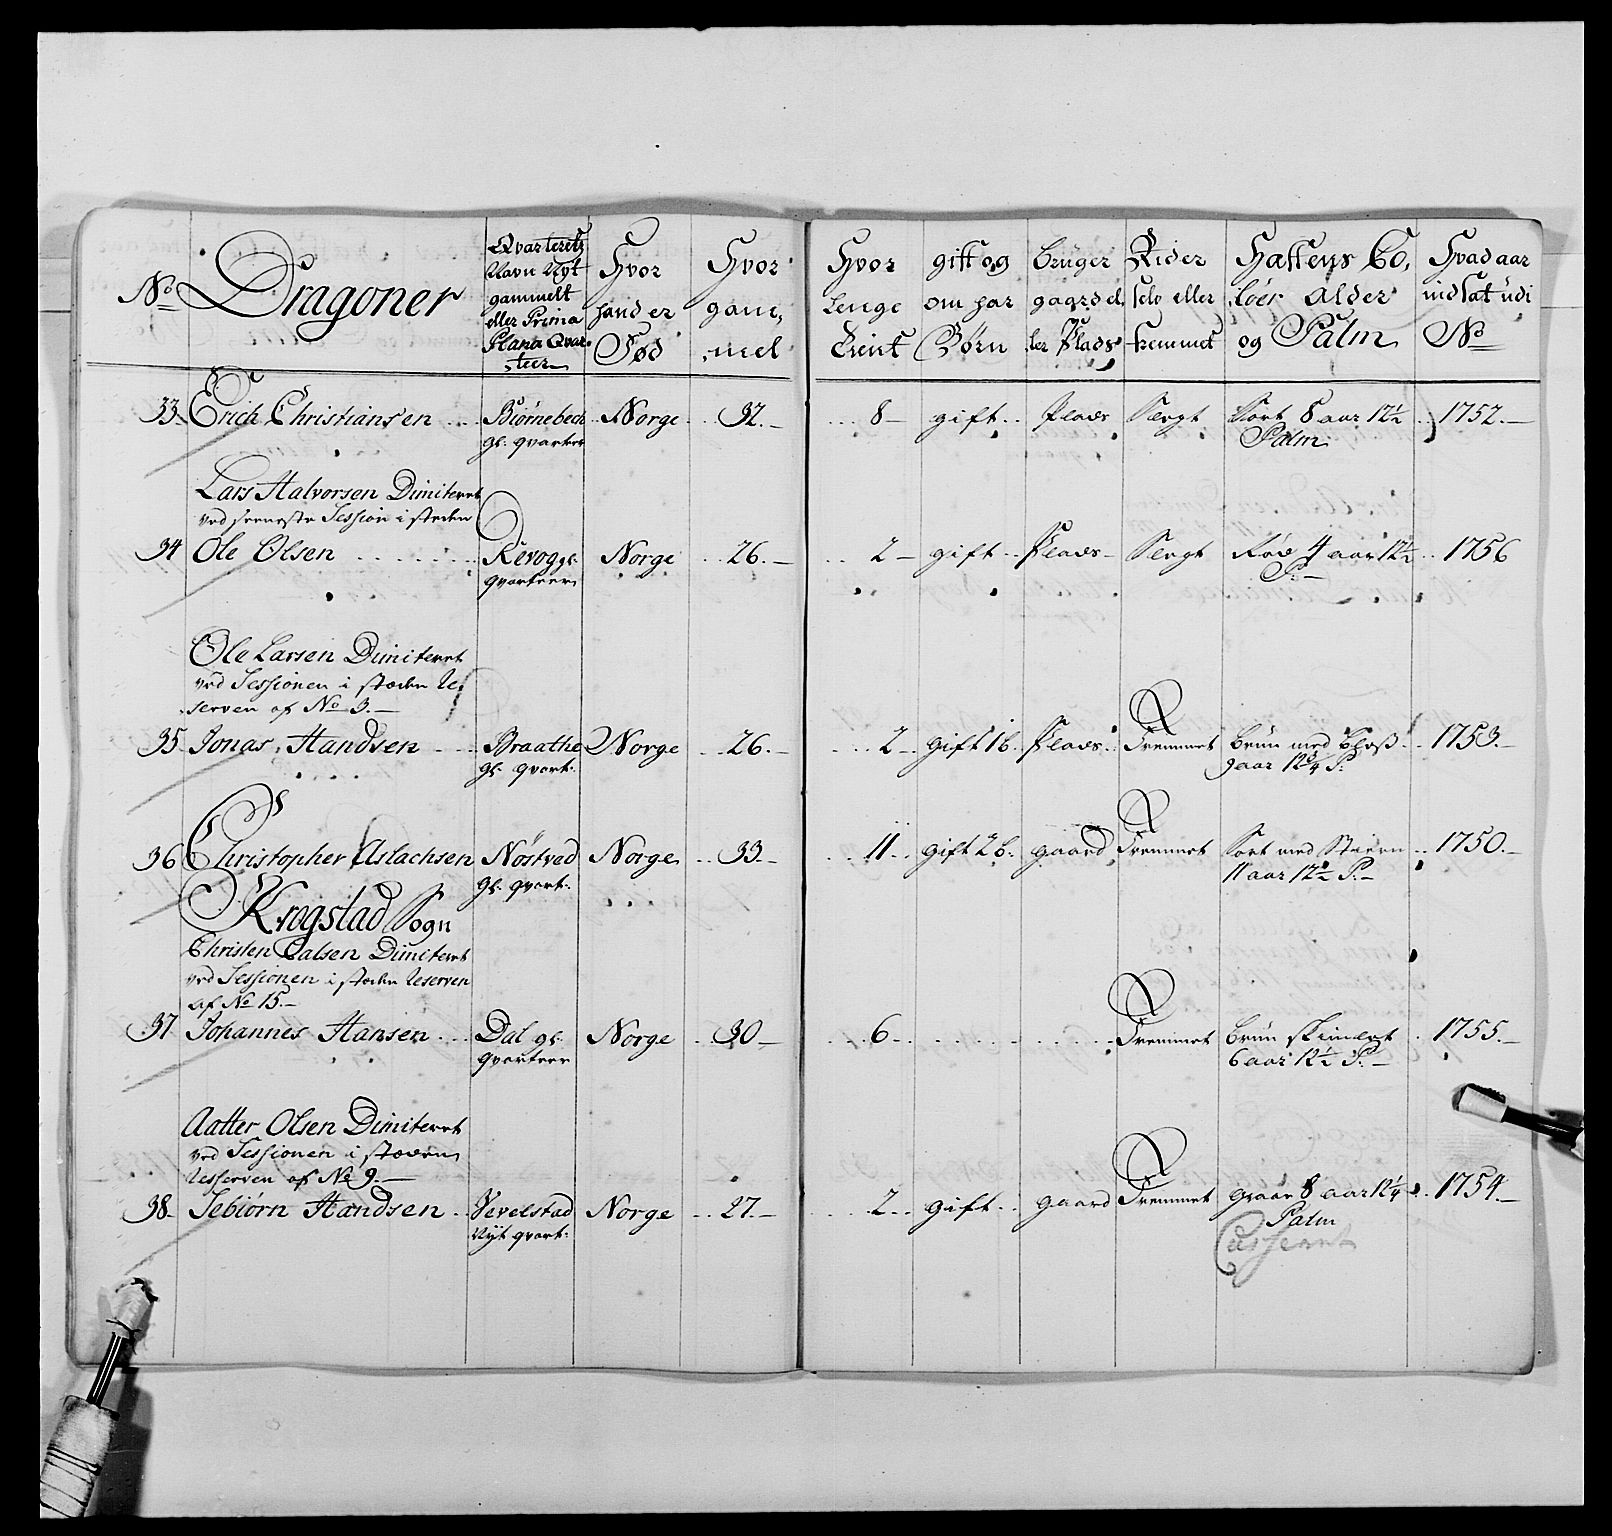 No Dragoner
Qvarterets
Navn Nyt
gammelt
eller Prima
Plana Qvar-
teer
Hvor
hand er
Fød
Hvor
gam,
,mel
Hvor
Lenge
Tient
gift og
om har
Børn
bruger
gaard el,
ler Plads
Rider
selv eller
fremmet
Hæstens Co,
løer Alder
og Palm
Hvad aar
indsat udi
No
33. Erich Christiansen Biørnebech Norge 32. 8 gift Plads Sergt Sort 8 aar 12½ 1752.
gl. qvarteer Palm
Lars Halvorsen Dimiteret
ved seeneste Session i steden
34 Ole Olsen Revog gl. Norge 26. 2 gift Plads Sergt Rød 4 aar 12½ 1756
qvarteer P:
Ole Larsen Dimiteret
ved Sessionen i steden Re,
serven af No 3.
35 Jonas Handsen Braathe Norge 26. 2 gift 1 b. Plads Fremmet brun med bles 1753.
gl. qvart: 9 aar 12¾ P:
36 Christopher Aslachsen Nøstvad Norge 33. 11 gift 2 b. gaard Fremmet Sort med Stiern 1750.
gl. qvart: 11 aar 12½ P:
Krogstad Sogn
Christen Calsen Dimiteret
ved Sessionen i steden Reserven
af No 15.
37 Johannes Hansen Dal gl. Norge 30 6 Fremmet brun skimlet 1755.
qvarteer 6 aar 12½ P:
Aatter Olsen Dimiteret
ved Sessionen i steden
Resserven af No 9.
38. Tebiørn Handsen Vevelstad Norge 27. 2 gift gaard Fremmet graae 8 aar 12¼ 1754.
Nyt qvart: Palm
Casseret